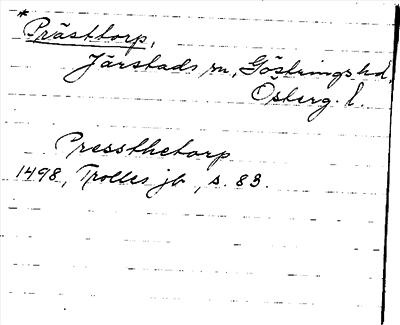 * Prästtorp,
Järstads sn, Göstrings hd,
Österg. l.
Pressthetorp
1498, Trolles jb, s. 83.